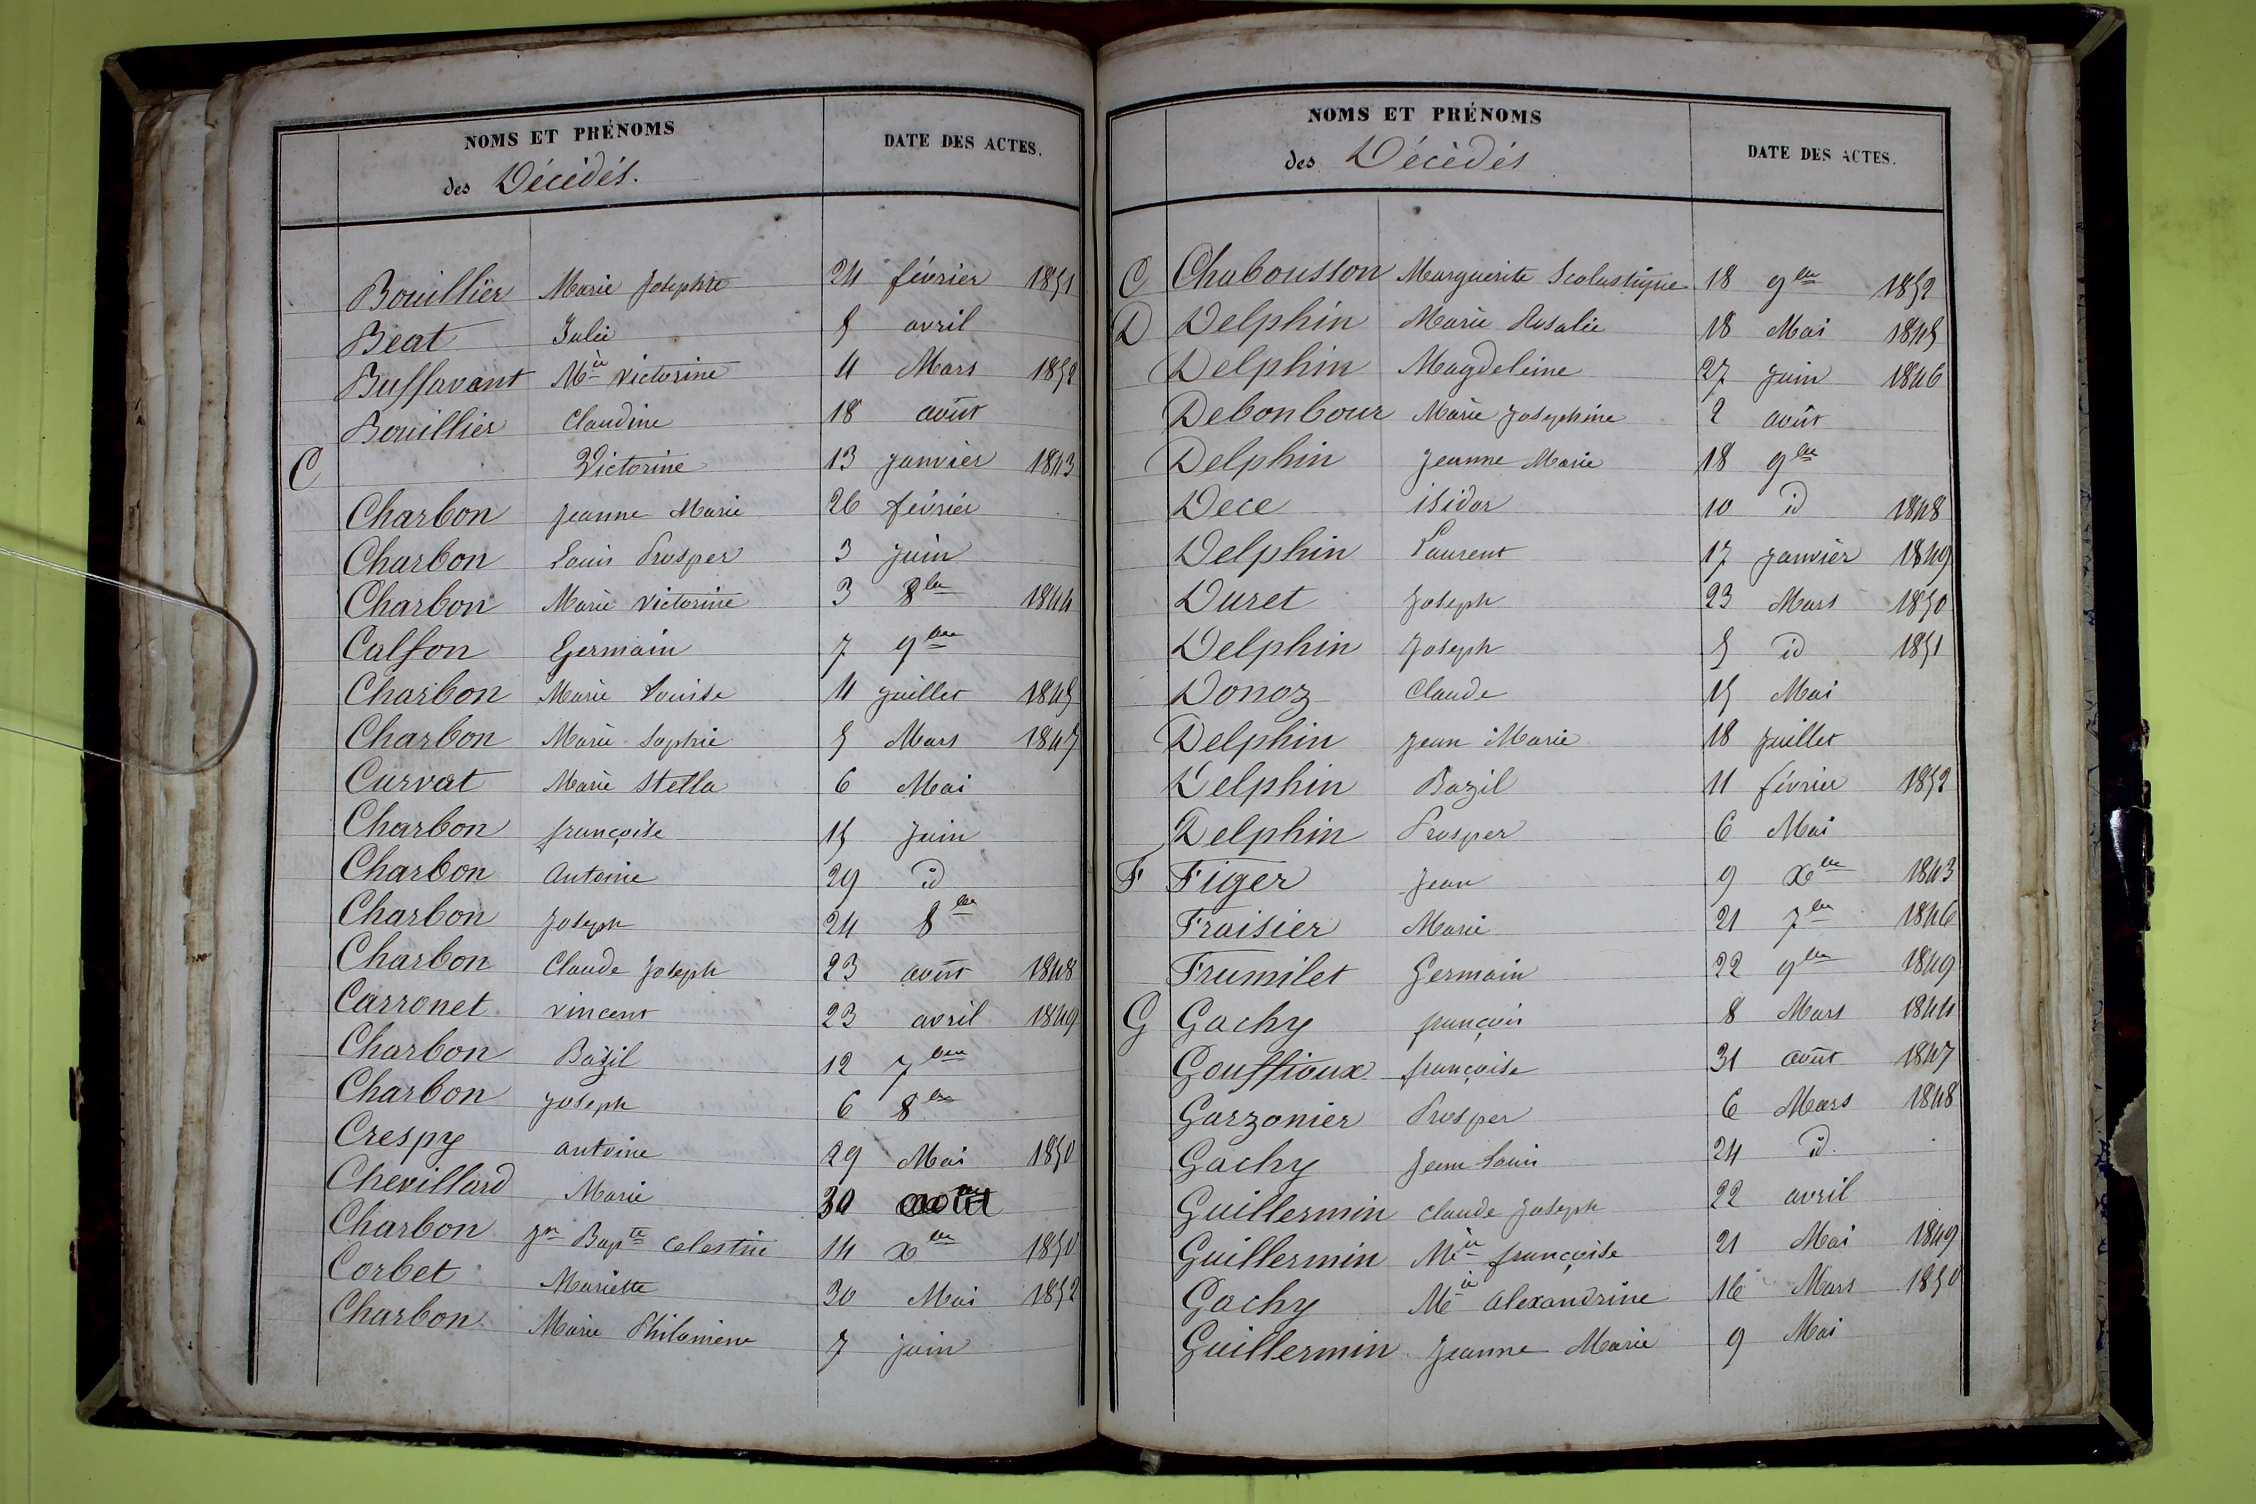 NOMS ET PRÉNOMS DATE DES ACTES.
des Décédés.
Bouillier Marie Josephte 24 février 1851
Beat Julie 5 avril
Buffavant Mie victorine 4 Mars 1852
Bouillier Claudine 18 août
C Victorine 13 janvier 1843
Charbon jeanne Marie 26 février
Charbon Louis Prosper 3 juin
Charbon Marie victorine 3 8bre 1844
Calfon Germain 7 9bre
Charbon Marie Louise 11 juillet 1845
Charbon Marie Sophie 5 Mars 1847
Curvat Marie Stella 6 Mai
Charbon françoise 15 juin
Charbon Antoine 29 id
Charbon Joseph 24 8bre
Charbon Claude Joseph 23 août 1848
Carronet vincent 23 avril 1849
Charbon Bazil 12 7bre
Charbon joseph 6 8bre
Crespy antoine 29 Mai 1850
Chevillard Marie 30
Charbon Jn Bapte Celestin 14 Xbre 1850
Corbet Mariette 30 Mai 1852
Charbon Marie Philomène 7 juin
NOMS ET PRÉNOMS DATE DES ACTES.
des Décédés
C Chabousson Marguerite Scolastique 18 9bre 1852
D Delphin Marie Rosalie 18 Mai 1845
Delphin Magdeleine 27 juin 1846
Debonbour Marie Josephine 2 août
Delphin Jeanne Marie 18 9bre
Dece isidor 10 id 1848
Delphin Laurent 17 janvier 1849
Duret Joseph 23 Mars 1850
Delphin Joseph 5 id 1851
Donoz Claude 15 Mai
Delphin Jean Marie 18 juillet
Delphin Bazil 11 février 1852
Delphin Prosper 6 Mai
F Figer Jean 9 Xbre 1843
Fraisier Marie 21 7bre 1846
Frumilet Germain 22 9bre 1849
G Gachy françois 8 Mars 1844
Gouffioux françoise 31 août 1847
Garzonier Prosper 6 Mars 1848
Gachy Jean Louis 24 id
Guillermin Claude Joseph 22 avril
Guillermin Mie françoise 21 Mai 1849
Gachy Mie Alexandrine 16 Mars 1850
Guillermin Jeanne Marie 9 Mai